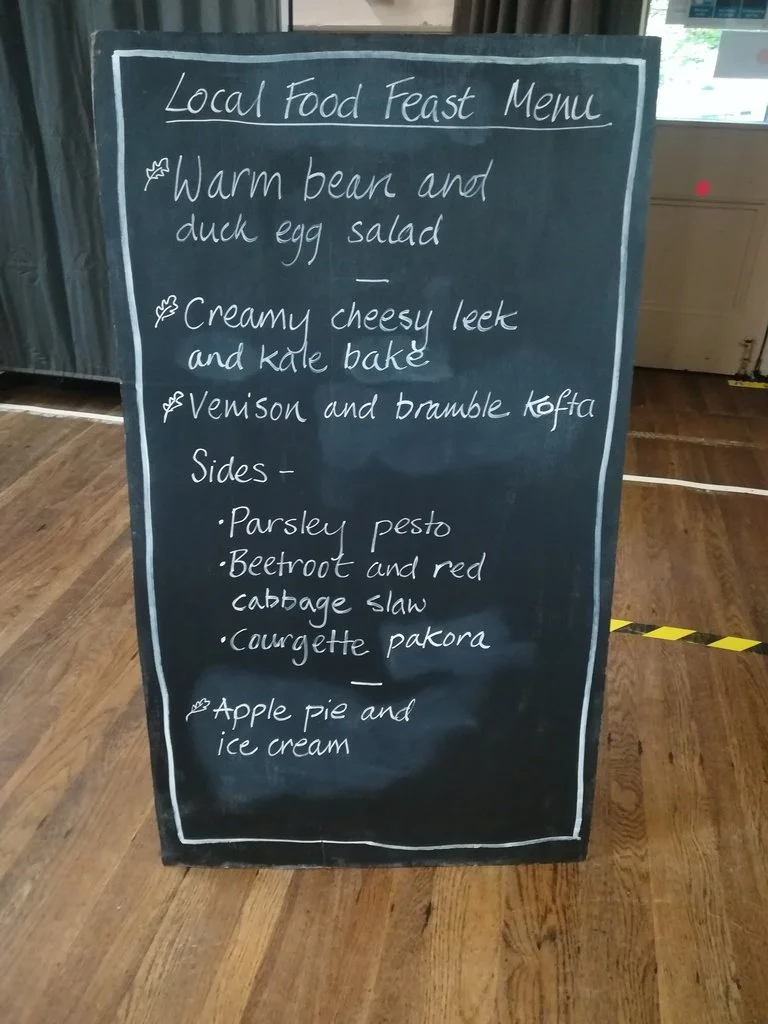 Local Food Feast Menu
Warm bean and
duck egg salad
—
Creamy cheesy leek
and kale bake
Venison and bramble kofta
Sides –
· Parsley pesto
· Beetroot and red
cabbage slaw
· Courgette pakora
—
Apple pie and
ice cream